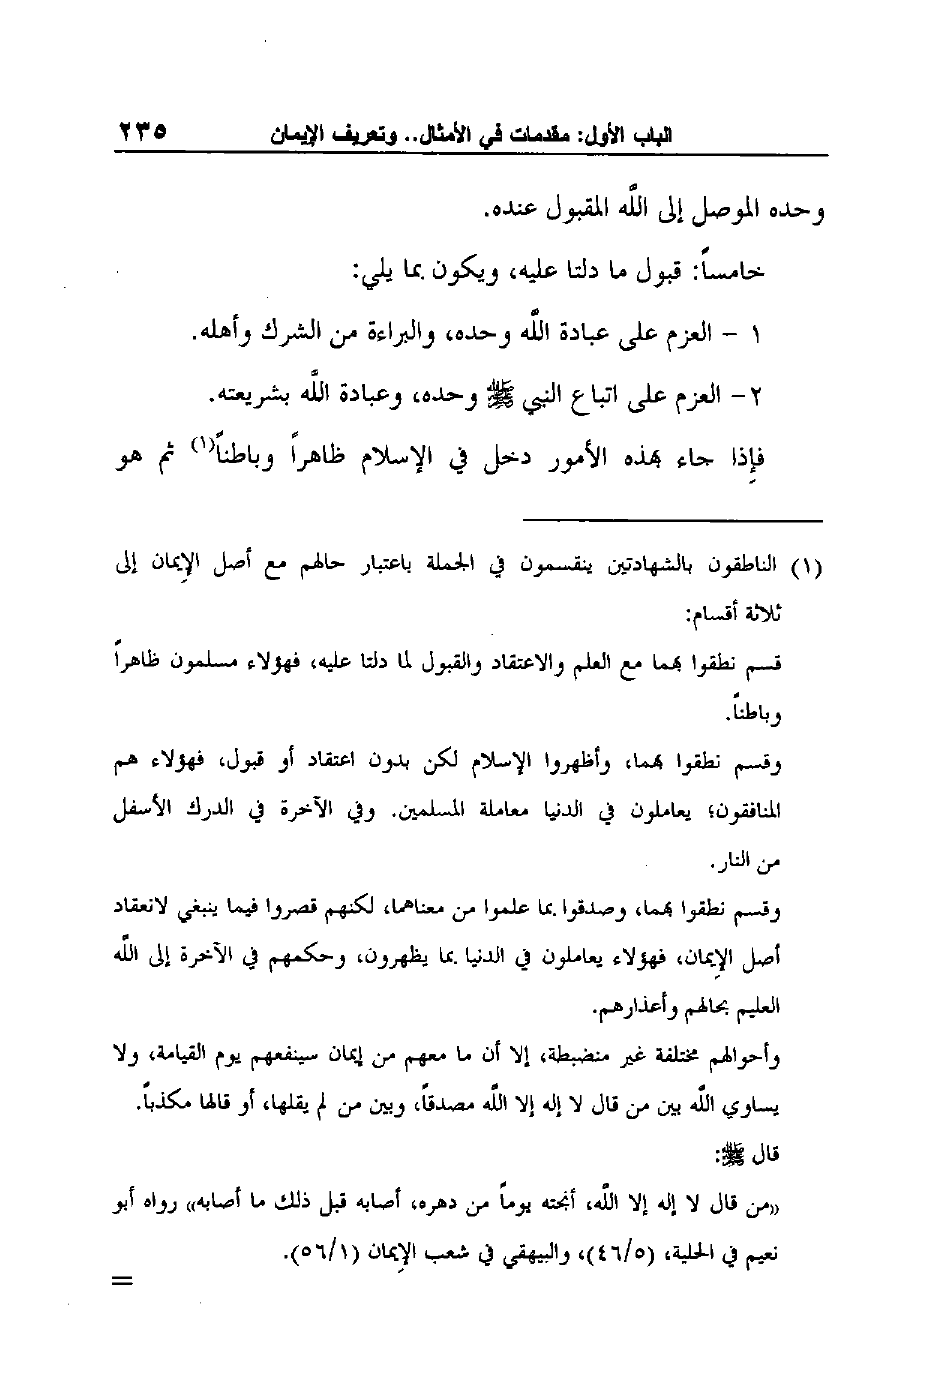 الباب الأول: مقدمات في الأمثال.. وتعريف الإيمان ٢٣٥
وحده الموصل إلى اللَّه المقبول عنده.
خامساً: قبول ما دلتا عليه، ويكون بما يلي:
١ - العزم على عبادة اللَّه وحده، والبراءة من الشرك وأهله.
٢- العزم على اتباع النبي ﷺ وحده، وعبادة اللَّه بشريعته.
فإذا جاء بهذه الأمور دخل في الإسلام ظاهراً وباطناً(١) ثم هو
(١) الناطقون بالشهادتين ينقسمون في الجملة باعتبار حالهم مع أصل الإيمان إلى
ثلاثة أقسام:
قسم نطقوا بهما مع العلم والاعتقاد والقبول لما دلتا عليه، فهؤلاء مسلمون ظاهراً
وباطناً.
وقسم نطقوا بهما، وأظهروا الإسلام لكن بدون اعتقاد أو قبول، فهؤلاء هم
المنافقون؛ يعاملون في الدنيا معاملة المسلمين. وفي الآخرة في الدرك الأسفل
من النار.
وقسم نطقوا بهما، وصدقوا بما علموا من معناهما، لكنهم قصروا فيما ينبغي لانعقاد
أصل الإيمان، فهؤلاء يعاملون في الدنيا بما يظهرون، وحكمهم في الآخرة إلى اللَّه
العليم بحالهم وأعذارهم.
وأحوالهم مختلفة غير منضبطة، إلا أن ما معهم من إيمان سينفعهم يوم القيامة، ولا
يساوي اللَّه بين من قال لا إله إلا اللَّه مصدقاً، وبين من لم يقلها، أو قالها مكذباً.
قال ﷺ:
«من قال لا إله إلا اللَّه، أنجته يوماً من دهره، أصابه قبل ذلك ما أصابه» رواه أبو
نعيم في الحلية، (٤٦/٥)، والبيهقي في شعب الإيمان (٥٦/١).
=